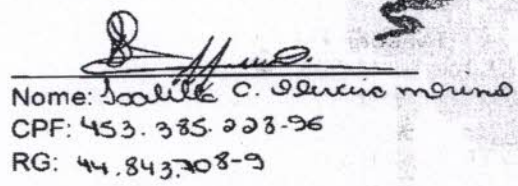 Nome: Isabille C. Oliveira moreno
CPF: 453.385.228-96
RG: 44.843.708-9